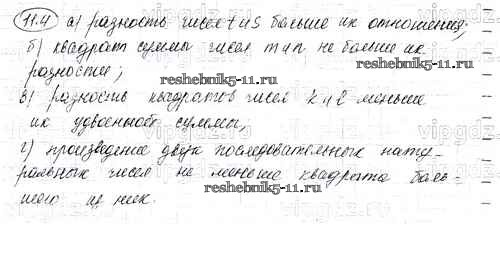 11.4 а) разность чисел t и s больше их отношения;
б) квадрат суммы чисел m и n не больше их
разности;
reshebnik5-11.ru
reshebnik5-11.ru
в) разность квадратов чисел k и l меньше
их удвоенной суммы;
г) произведение двух последовательных нату-
ральных чисел не меньше квадрата боль-
reshebnik5-11.ru
шего из них.